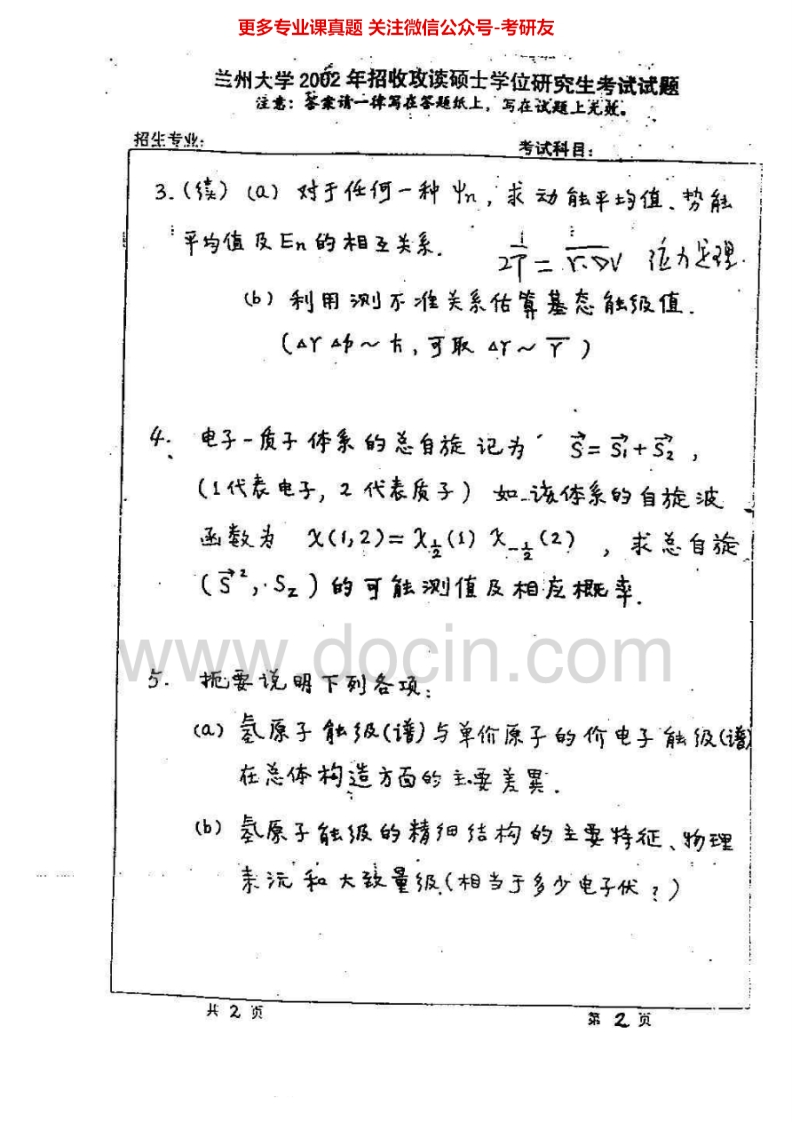 更多专业课真题 关注微信公众号-考研友
兰州大学2002年招收攻读硕士学位研究生考试试题
注意：答案请一律写在答题纸上，写在试题上无效。
招生专业：
考试科目：
3.(续) (a) 对于任何一种 ψn, 求动能平均值、势能
平均值及En的相互关系.
2T = r·∇V
(b) 利用测不准关系估算基态能级值.
(Δr Δp ~ ħ, 可取 Δr ~ r̄ )
4. 电子-质子体系的总自旋记为 S⃗ = S⃗₁ + S⃗₂ ,
(1代表电子, 2代表质子) 如该体系的自旋波
函数为 χ(1,2) = χ½(1) χ₋½(2) , 求总自旋
(S⃗², Sz) 的可能测值及相应概率.
www.docin.com
5. 扼要说明下列各项:
(a) 氢原子能级(谱)与单价原子的价电子能级(谱)
在总体构造方面的主要差異.
(b) 氢原子能级的精细结构的主要特征、物理
来沅和大致量级(相当于多少电子伏?)
共 2 页
第 2 页